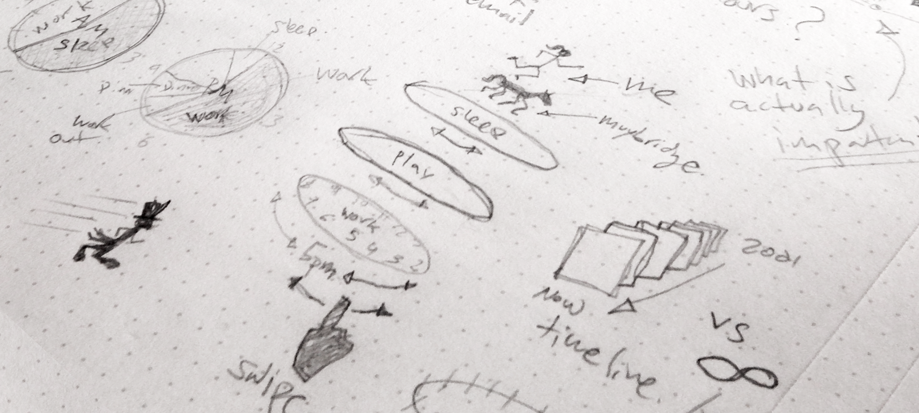 work
AM
sleep
email
ours ?
sleep
work
9
Dinn
PM
work
3
6
work
out
me
muybridge
what is
actually
sleep
play
work
5 4 3 2
5pm
swipe
2001
Now
timeline.
vs